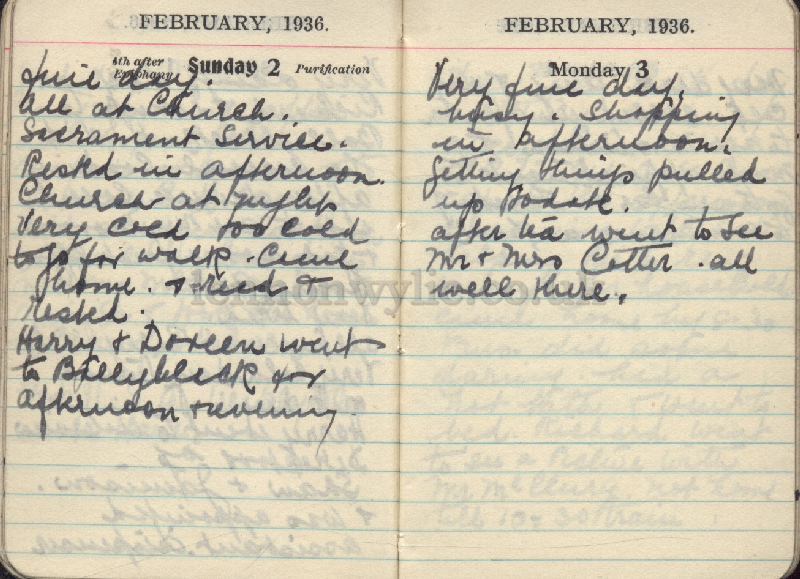 FEBRUARY, 1936.
4th after Epiphany Sunday 2 Purification
Fine day.
All at Church.
Sacrament Service.
Rested in afternoon.
Church at night
Very cold too cold
to go for walk. Came
home. & read &
rested.
Harry & Doreen went
to Ballyblack for
afternoon & evening
FEBRUARY, 1936.
Monday 3
Very fine day.
busy. Shopping
in afternoon.
Getting things pulled
up to date.
after tea went to see
Mr & Mrs Cotter. all
well there.